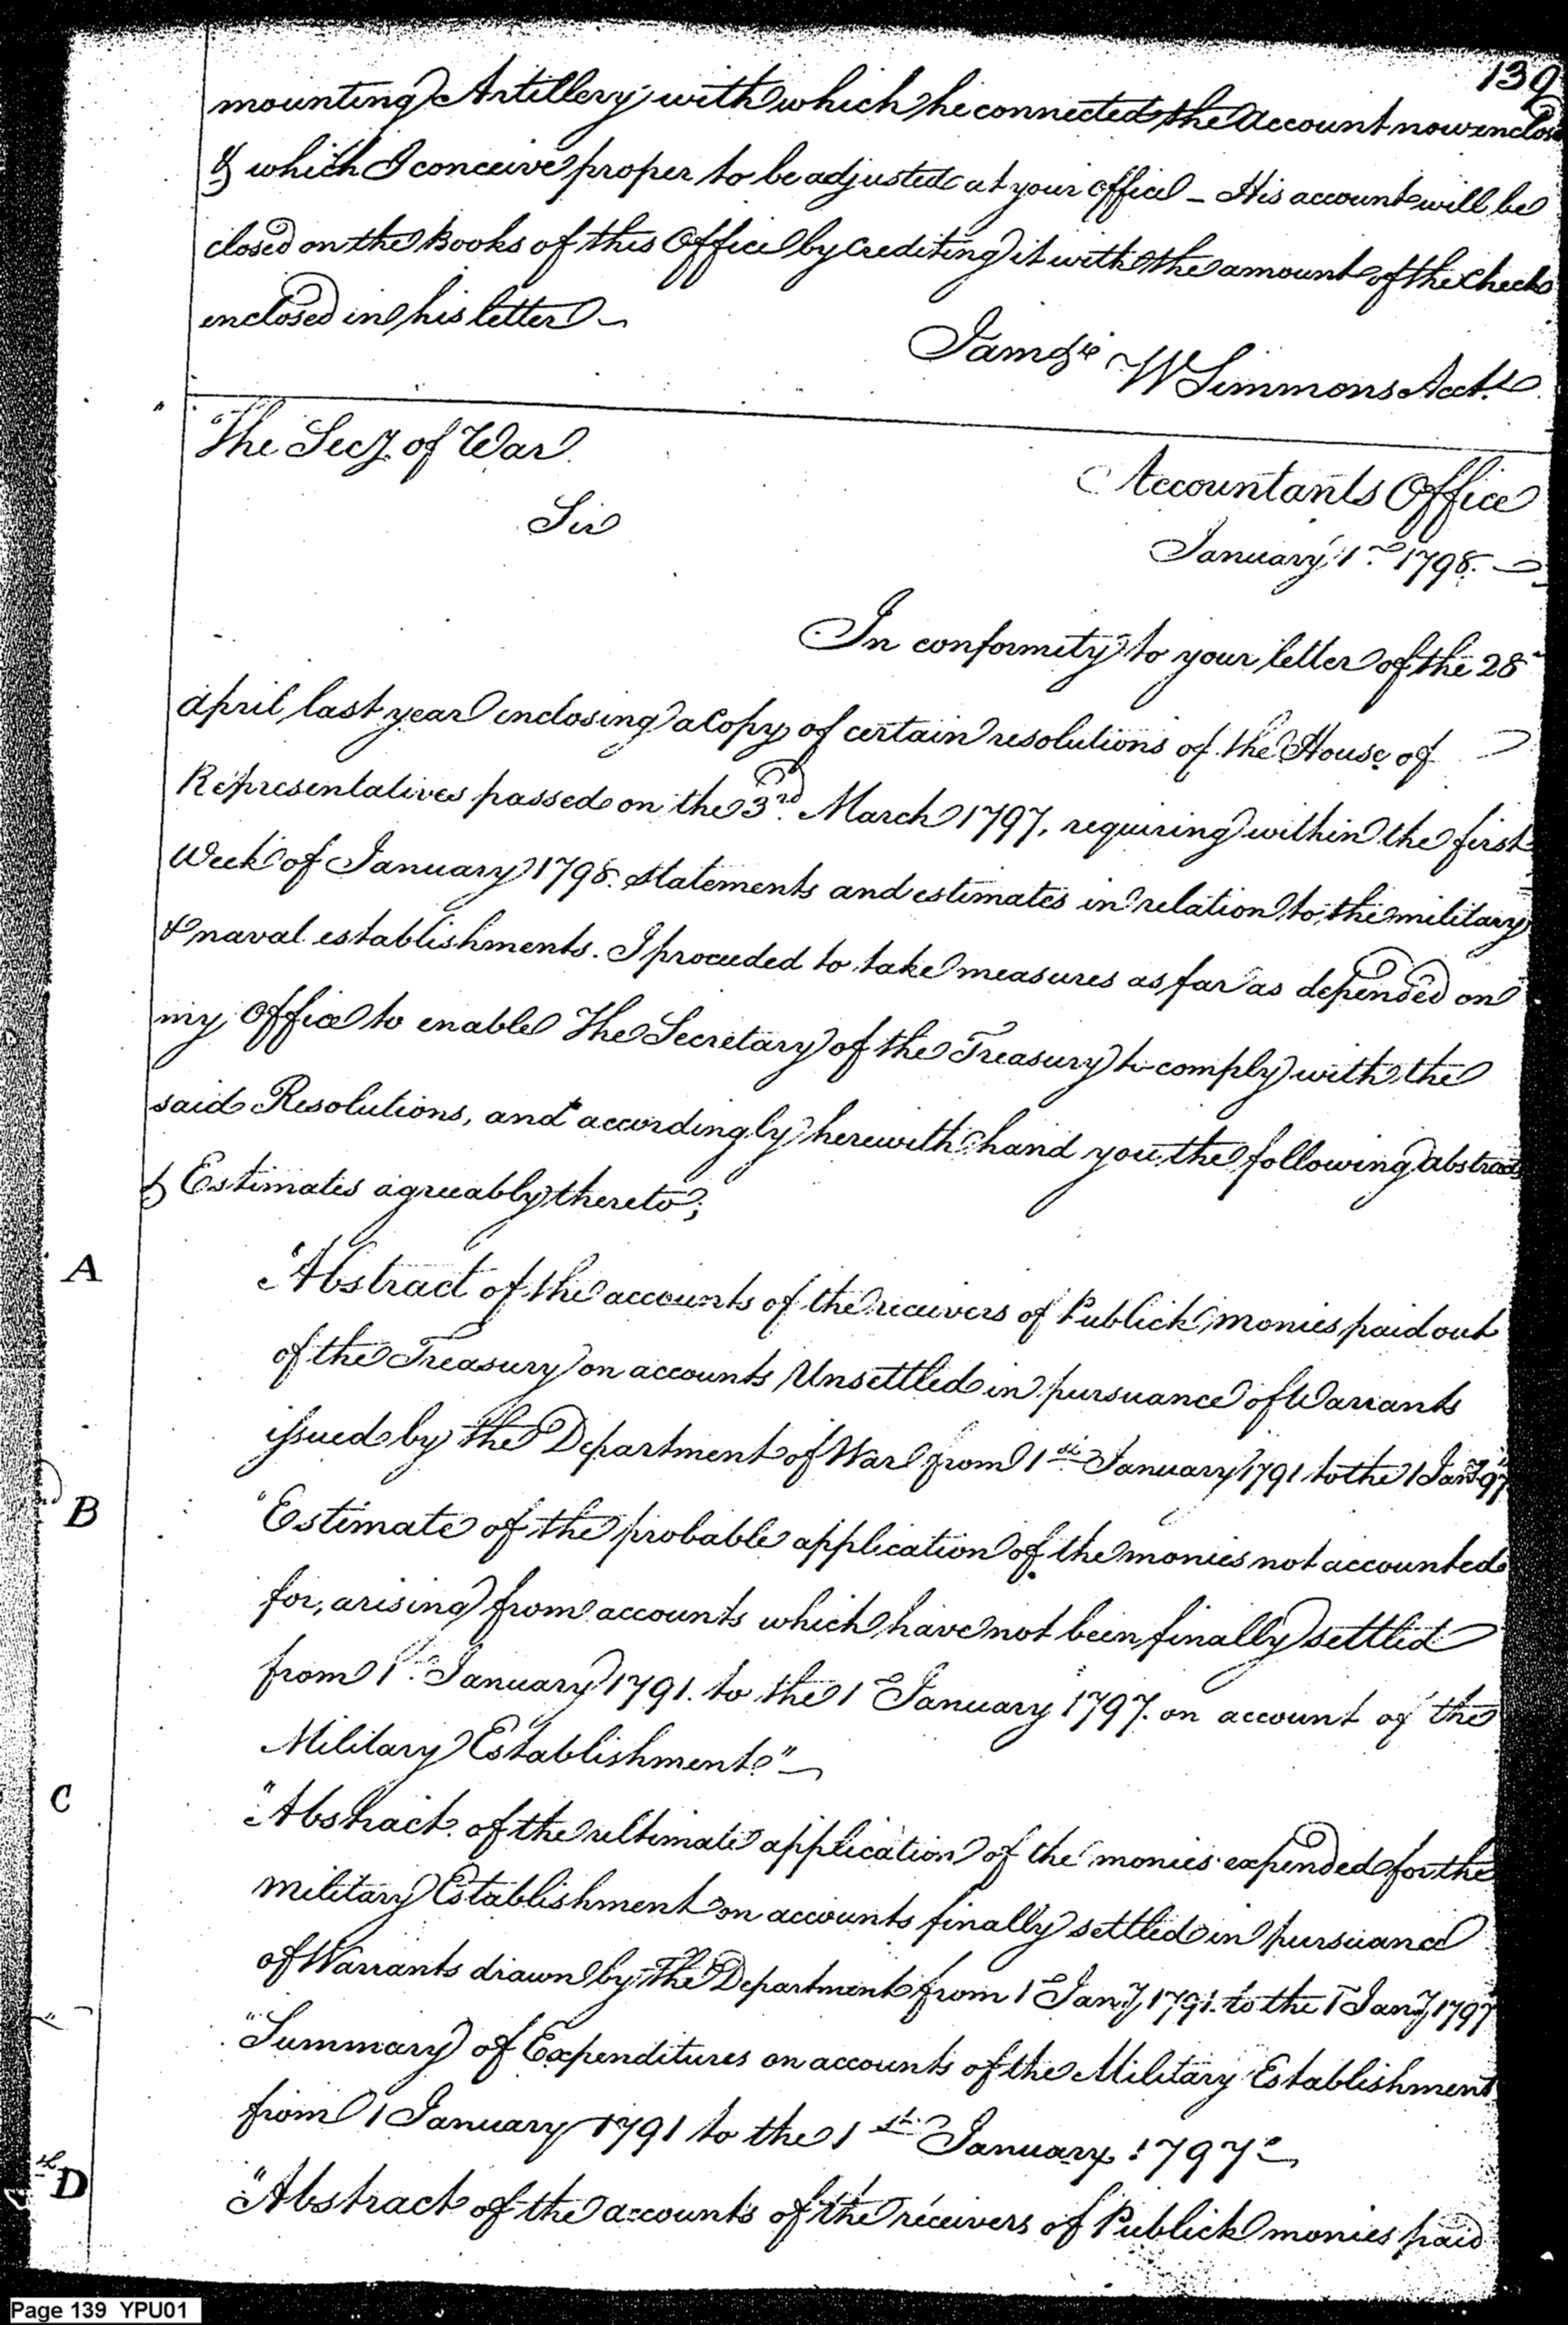 139
mounting Artillery with which he connected the account now enclos
& which I conceive proper to be adjusted at your office – His account will be
closed on the Books of this Office by crediting it with the amount of the Checks
enclosed in his letter –
I am &c
W Simmons Acct.
The Secy of War
Accountants Office
Sir
January 1st 1798. –
In conformity to your letter of the 28
April last year enclosing a Copy of certain resolutions of the House of
Representatives passed on the 3rd March 1797, requiring within the first
Week of January 1798. Statements and estimates in relation to the military
& naval establishments. I proceeded to take measures as far as depended on
my Office to enable The Secretary of the Treasury to comply with the
said Resolutions, and accordingly herewith hand you the following Abstracts
& Estimates agreeably thereto;
A
"Abstract of the accounts of the receivers of Publick monies paid out
of the Treasury on accounts Unsettled in pursuance of Warrants
issued by the Department of War from 1st January 1791 to the 1 Jany 97"
B
"Estimate of the probable application of the monies not accounted
for, arising from accounts which have not been finally settled
from 1st January 1791. to the 1st January 1797. on account of the
Military Establishment" –
C
"Abstract of the ultimate application of the monies expended for the
military Establishment on accounts finally settled in pursuance
of Warrants drawn by The Department from 1st Jany 1791. to the 1 Jany 1797
"Summary of Expenditures on accounts of the Military Establishment
from 1 January 1791 to the 1st January 1797" –
D
"Abstract of the accounts of the receivers of Publick monies paid
Page 139 YPU01